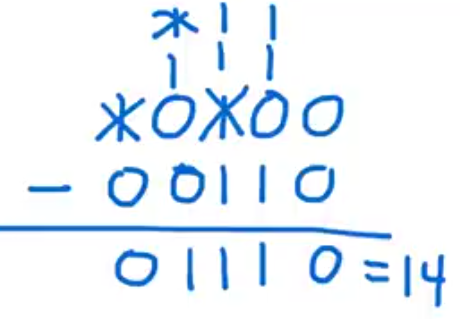 * 1 1
1 1 1
* 0 * 0 0
- 0 0 1 1 0
0 1 1 1 0 = 14